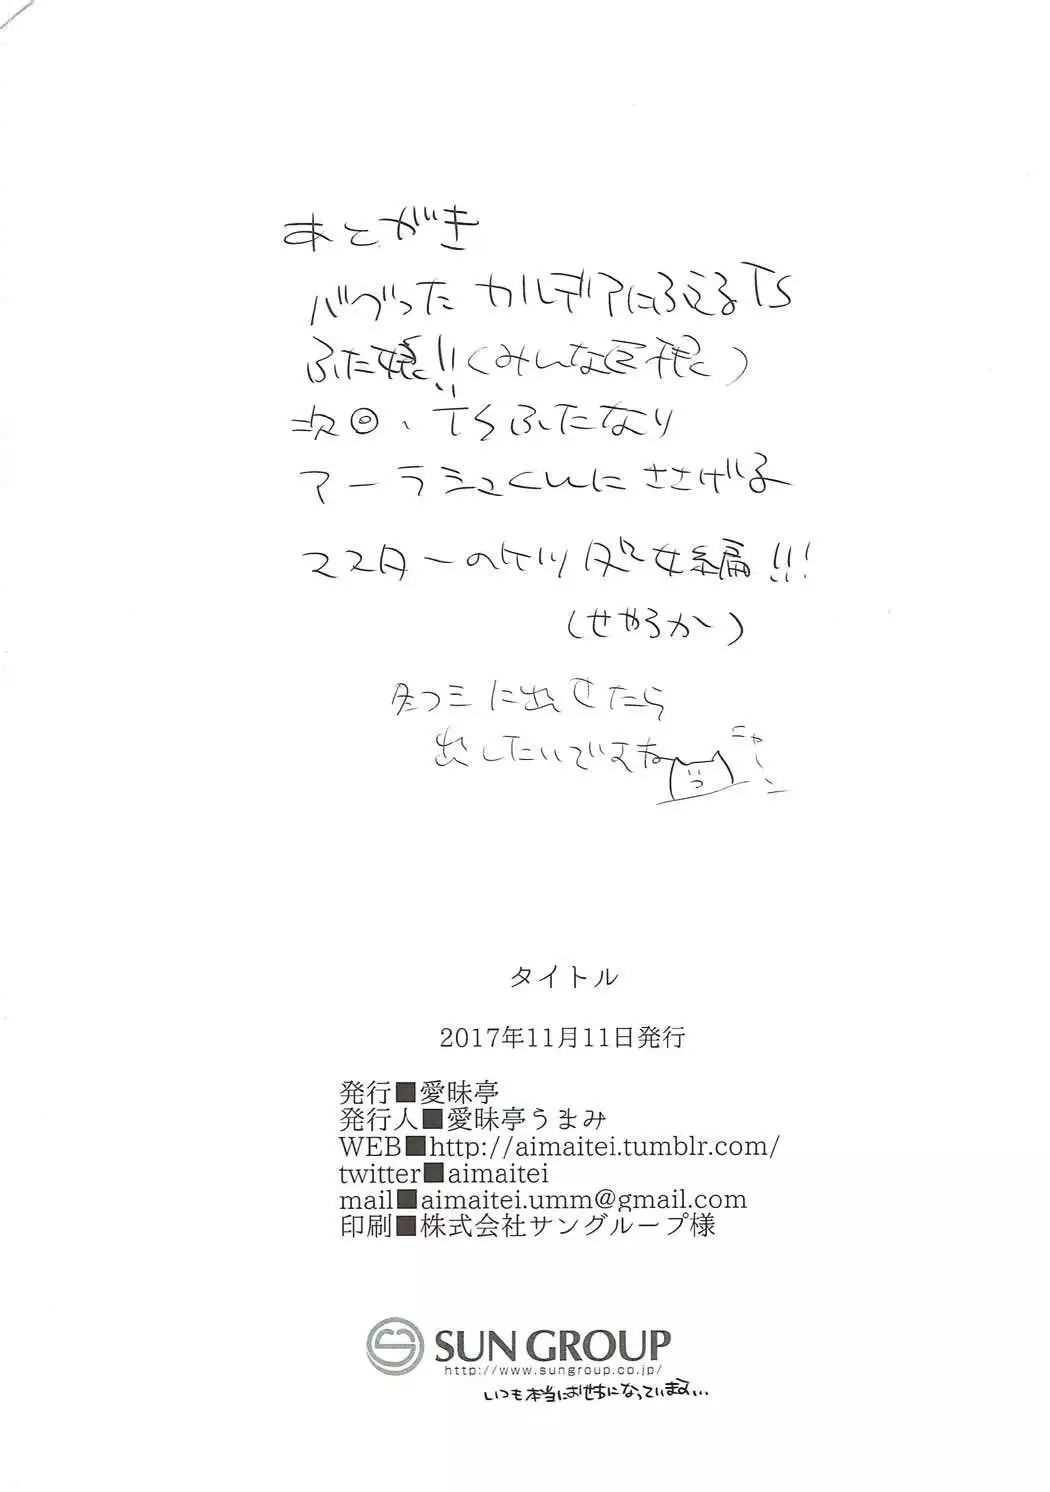 あとがき
バグった カルデアにふえるTS
ふた娘!!(みんな巨根)
次回、TSふたなり
アーラシュくんに ささげる
マスターのケツ処女編!!!
(せやろかー)
冬コミに出せたら
出したいですね
ニャーン
タイトル
2017年11月11日発行
発行■愛昧亭
発行人■愛昧亭うまみ
WEB■http://aimaitei.tumblr.com/
twitter■aimaitei
mail■aimaitei.umm@gmail.com
印刷■株式会社サングループ様
SUN GROUP
http://www.sungroup.co.jp/
いつも本当にお世話になっています…